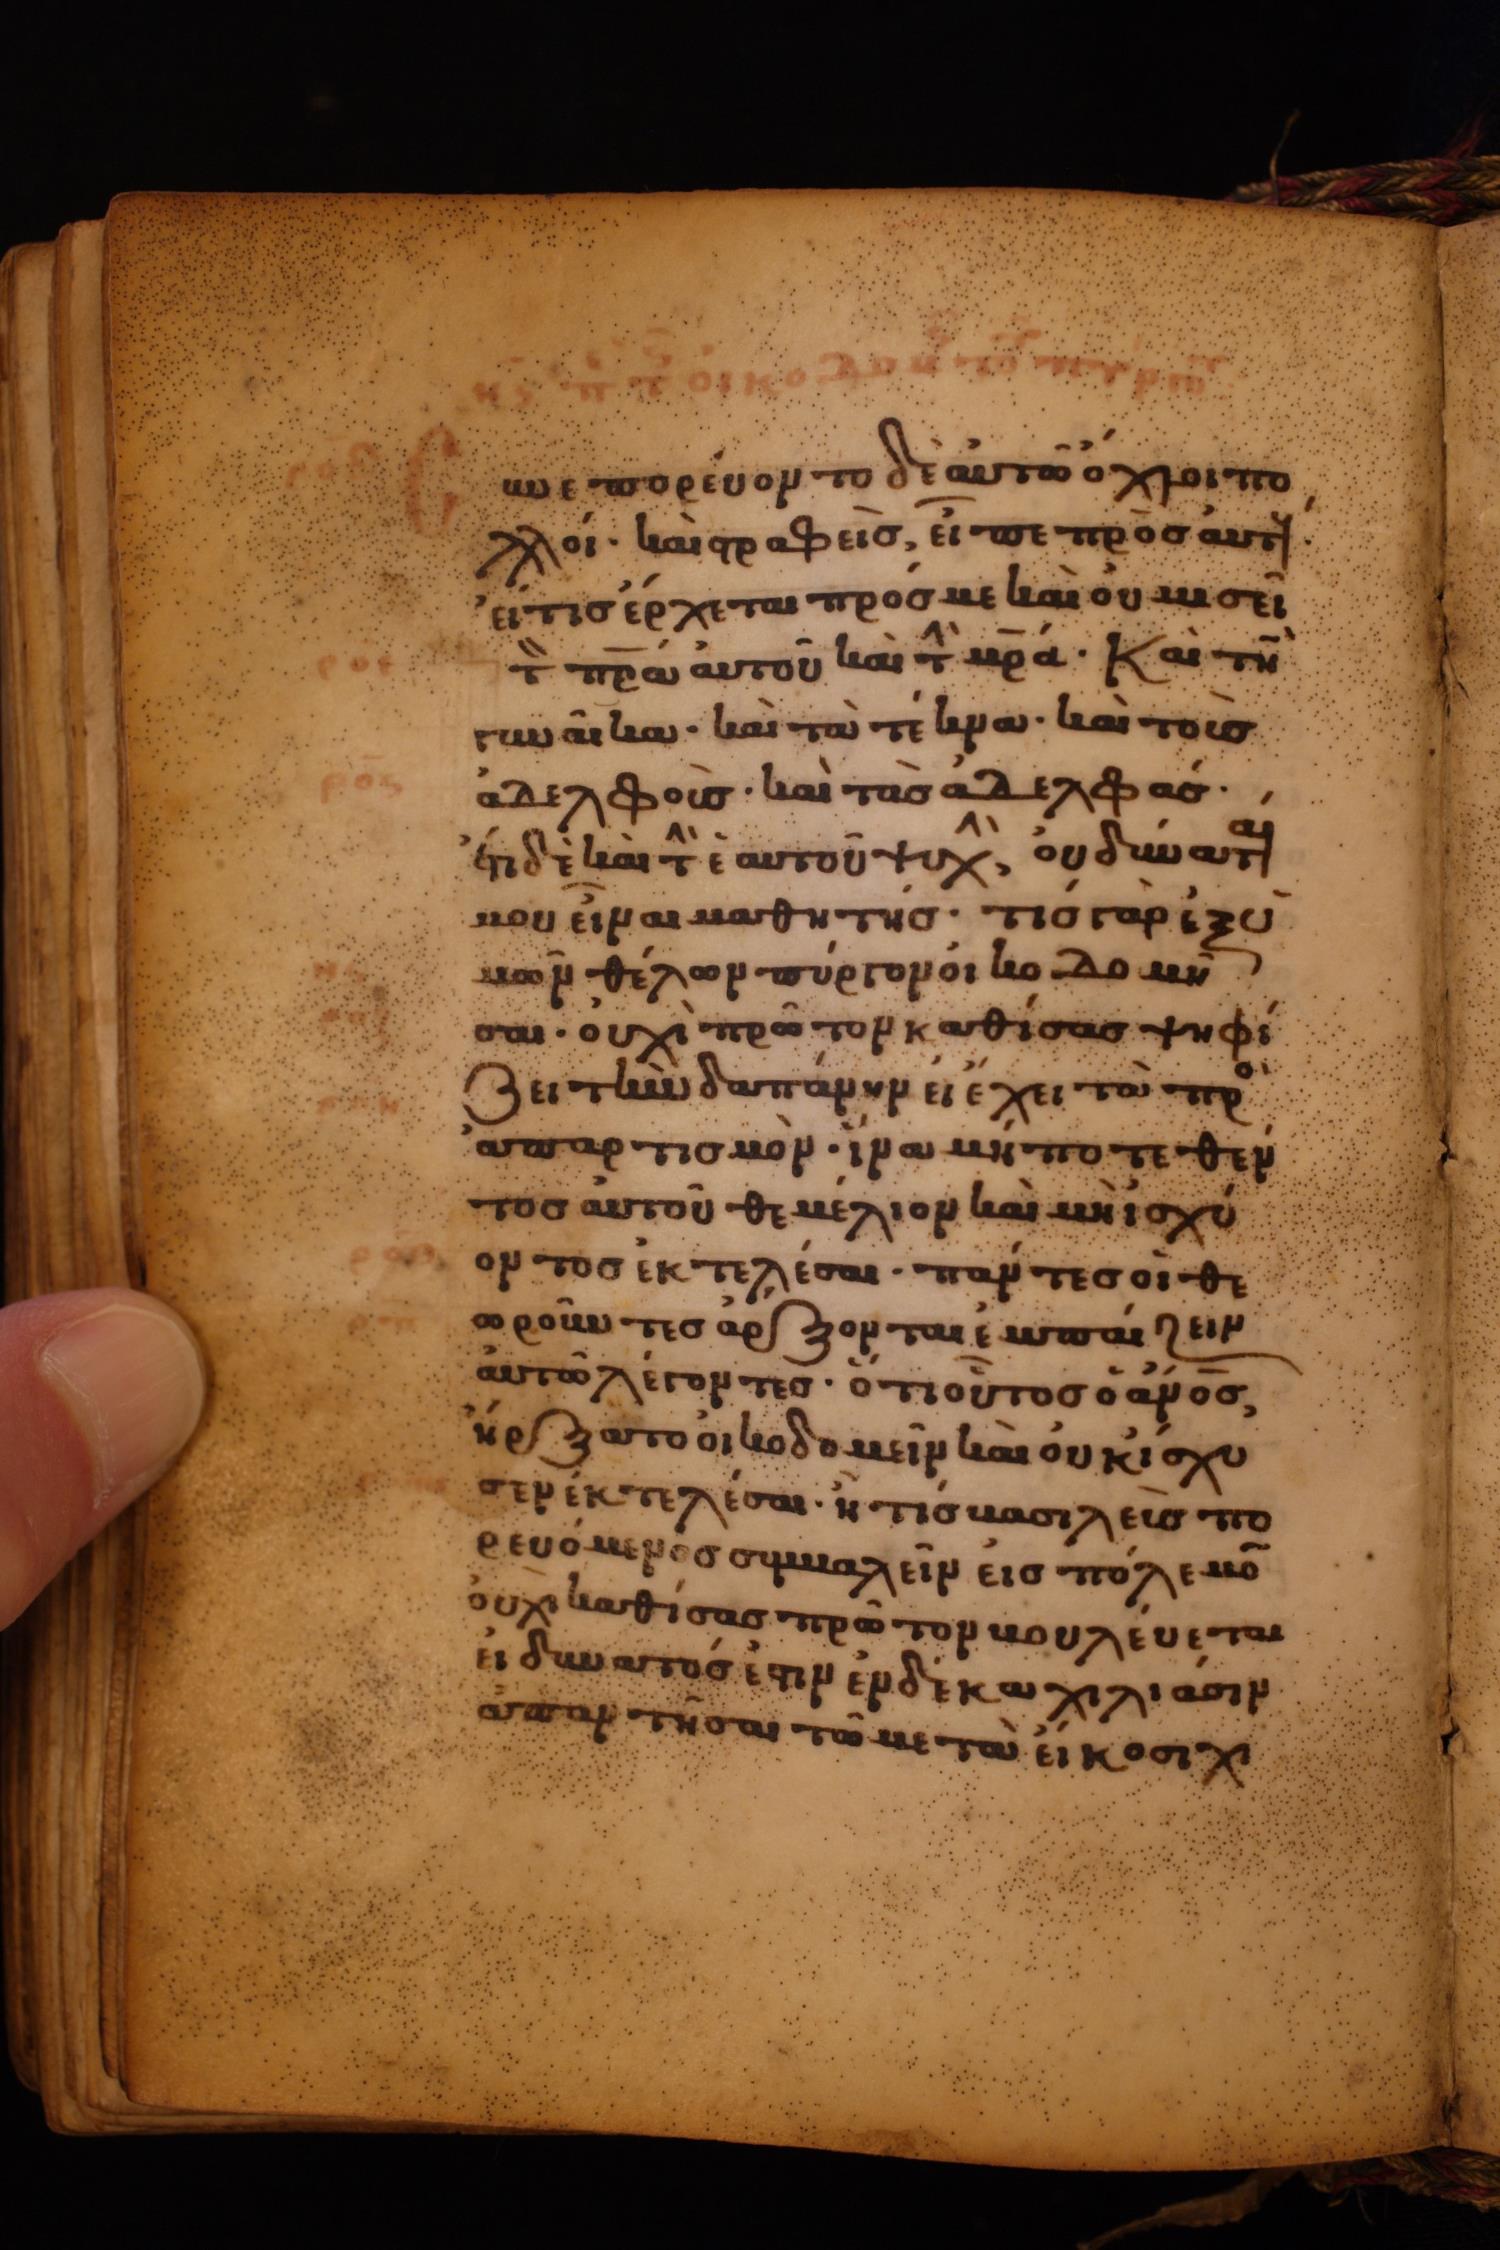 οἰκοδομ τοῦ πύργου
Συνεπορεύοντο δὲ αὐτῶ ὄχλοι πο
λλοί· καὶ στραφεὶς, εἶπε πρὸς αὐτούς·
εἴ τις ἔρχεται πρός με καὶ οὐ μισεῖ
τὸν πρ̅α αὐτοῦ καὶ τὴν μρ̅α· Καὶ τὴν
γυναῖκα· καὶ τὰ τέκνα· καὶ τοὺς
ἀδελφοὺς· καὶ τὰς ἀδελφάς·
ἔτι δὲ καὶ τὴν ἑαυτοῦ ψυχὴν, οὐ δύναταί
μου εἶναι μαθητής· τίς γὰρ ἐξ ὑ
μῶν θέλων πύργον οἰκοδομῆ
σαι· οὐχὶ πρῶτον καθίσας ψηφί
ζει τὴν δαπάνην εἰ ἔχει τὰ πρὸς
ἀπαρτισμὸν· ἵνα μήποτε θέν
τος αὐτοῦ θεμέλιον καὶ μὴ ἰσχύ
οντος ἐκτελέσαι· πάντες οἱ θε
ωροῦντες ἄρξονται ἐμπαίζειν
αὐτῶ λέγοντες· ὅτι οὗτος ὁ ἄν̅ο̅ς̅,
ἤρξατο οἰκοδομεῖν καὶ οὐκ ἴσχυ
σεν ἐκτελέσαι· ἢ τίς βασιλεὺς πο
ρευόμενος συμβαλεῖν εἰς πόλεμο̅
οὐχὶ καθίσας πρῶτον βουλεύεται
εἰ δυνατός ἐστιν ἐν δέκα χιλιάσιν
ἀπαντῆσαι τῶ μετὰ εἴκοσι χι